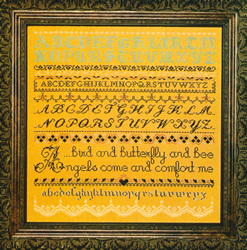 ABCDEFGHIJKLMNOPQRSTUVWXYZ
ABCDEFGHIJKLM
NOPQRSTUVWXYZ
...Bird and Butterfly and Bee
Angels come and comfort me
abcdefghijklmnopqrstuvwxyz